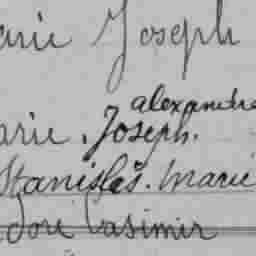 arie Joseph
alexandre
arie. Joseph.
Stanislas. Marie
dore Casimir